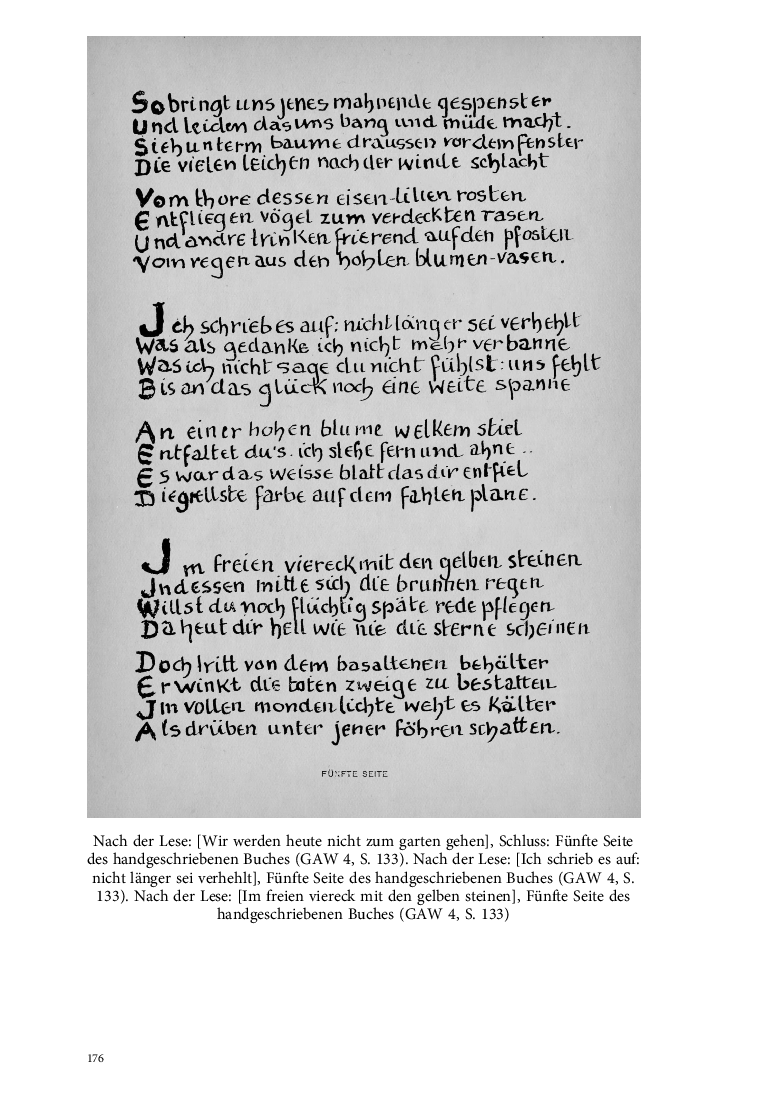 So bringt uns jenes mahnende gespenster
Und leiden das uns bang und müde macht.
Sieh unterm baume draussen vor dem fenster
Die vielen leichen nach der winde schlacht
Vom thore dessen eisen-lilien rosten
Entfliegen vögel zum verdeckten rasen
Und andre trinken frierend auf den pfosten
Vom regen aus den hohlen blumen-vasen.
Ich schrieb es auf: nicht länger sei verhehlt
Was als gedanke ich nicht mehr verbanne
Was ich nicht sage du nicht fühlst: uns fehlt
Bis an das glück noch eine weite spanne
An einer hohen blume welkem stiel
Entfaltet du's. ich stehe fern und ahne ..
Es war das weisse blatt das dir entfiel
Die grellste farbe auf dem fahlen plane.
Im freien viereck mit den gelben steinen
Indessen mitte sich die brunnen regen
Willst du noch flüchtig späte rede pflegen
Da heut dir hell wie nie die sterne scheinen
Doch tritt von dem basaltenen behälter
Er winkt die toten zweige zu bestatten
Im vollen mondenlichte weht es kälter
Als drüben unter jener föhren schatten.
FÜNFTE SEITE
Nach der Lese: [Wir werden heute nicht zum garten gehen], Schluss: Fünfte Seite
des handgeschriebenen Buches (GAW 4, S. 133). Nach der Lese: [Ich schrieb es auf:
nicht länger sei verhehlt], Fünfte Seite des handgeschriebenen Buches (GAW 4, S.
133). Nach der Lese: [Im freien viereck mit den gelben steinen], Fünfte Seite des
handgeschriebenen Buches (GAW 4, S. 133)
176